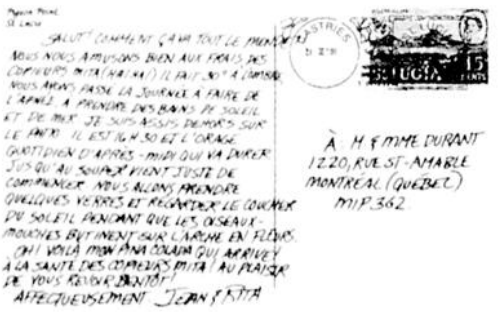 Pigeon Point
St Lucia
SALUT! COMMENT ÇA VA TOUT LE MONDE?
NOUS NOUS AMUSONS BIEN AUX FRAIS DES
COPIEURS MITA (HAI HAI) IL FAIT 30° À L'OMBRE
NOUS AVONS PASSÉ LA JOURNÉE À FAIRE DE
À PRENDRE DES BAINS DE SOLEIL
ET DE MER JE SUIS ASSIS DEHORS SUR
LE PATIO IL EST 16 H 30 ET L'ORAGE
QUOTIDIEN D'APRÈS-MIDI QUI VA DURER
JUSQU'AU SOUPER VIENT JUSTE DE
COMMENCER NOUS ALLONS PRENDRE
QUELQUES VERRES ET REGARDER LE COUCHER
DU SOLEIL PENDANT QUE LES OISEAUX-
MOUCHES BUTINENT SUR L'ARCHE EN FLEURS.
OH! VOILÀ MON PINA COLADA QUI ARRIVE!
À LA SANTÉ DES COPIEURS MITA! AU PLAISIR
DE VOUS REVOIR BIENTÔT!
AFFECTUEUSEMENT. JEAN & RITA
CASTRIES
ST. LUCIA
15
CENTS
À: M & MME DURANT
1220, RUE ST-AMABLE
MONTRÉAL (QUÉBEC)
M1P 3G2